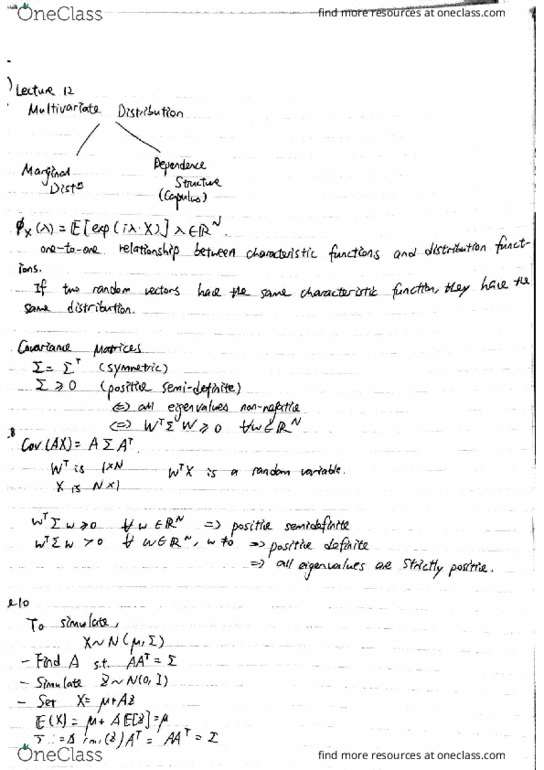 OneClass find more resources at oneclass.com
Lecture 12
Multivariate Distribution
Marginal Dependence
Dist Structure
(Copulus)
ϕ_X(λ) = E[exp(iλ·X)] λ∈ℝ^N.
one-to-one relationship between characteristic functions and distribution funct-
ions.
If two random vectors have the same characteristic function, they have the
same distribution.
Covariance Matrices
Σ = Σ^T (symmetric)
Σ ≥ 0 (positive semi-definite)
⟺ all eigenvalues non-negative
⟺ W^T Σ W ≥ 0 ∀w∈ℝ^N
Cov(AX) = A Σ A^T
W^T is 1×N W^T X is a random variable.
X is N×1
W^T Σ w ≥ 0 ∀ w∈ℝ^N ⇒ positive semidefinite
W^T Σ w > 0 ∀ w∈ℝ^N, w≠0 ⇒ positive definite
⇒ all eigenvalues are strictly positive.
To simulate,
X ~ N(μ, Σ)
- Find A s.t. AA^T = Σ
- Simulate Z ~ N(0, I)
- Set X = μ+AZ
E(X) = μ + A E[Z] = μ
(Z)A^T = AA^T = Σ
OneClass find more resources at oneclass.com